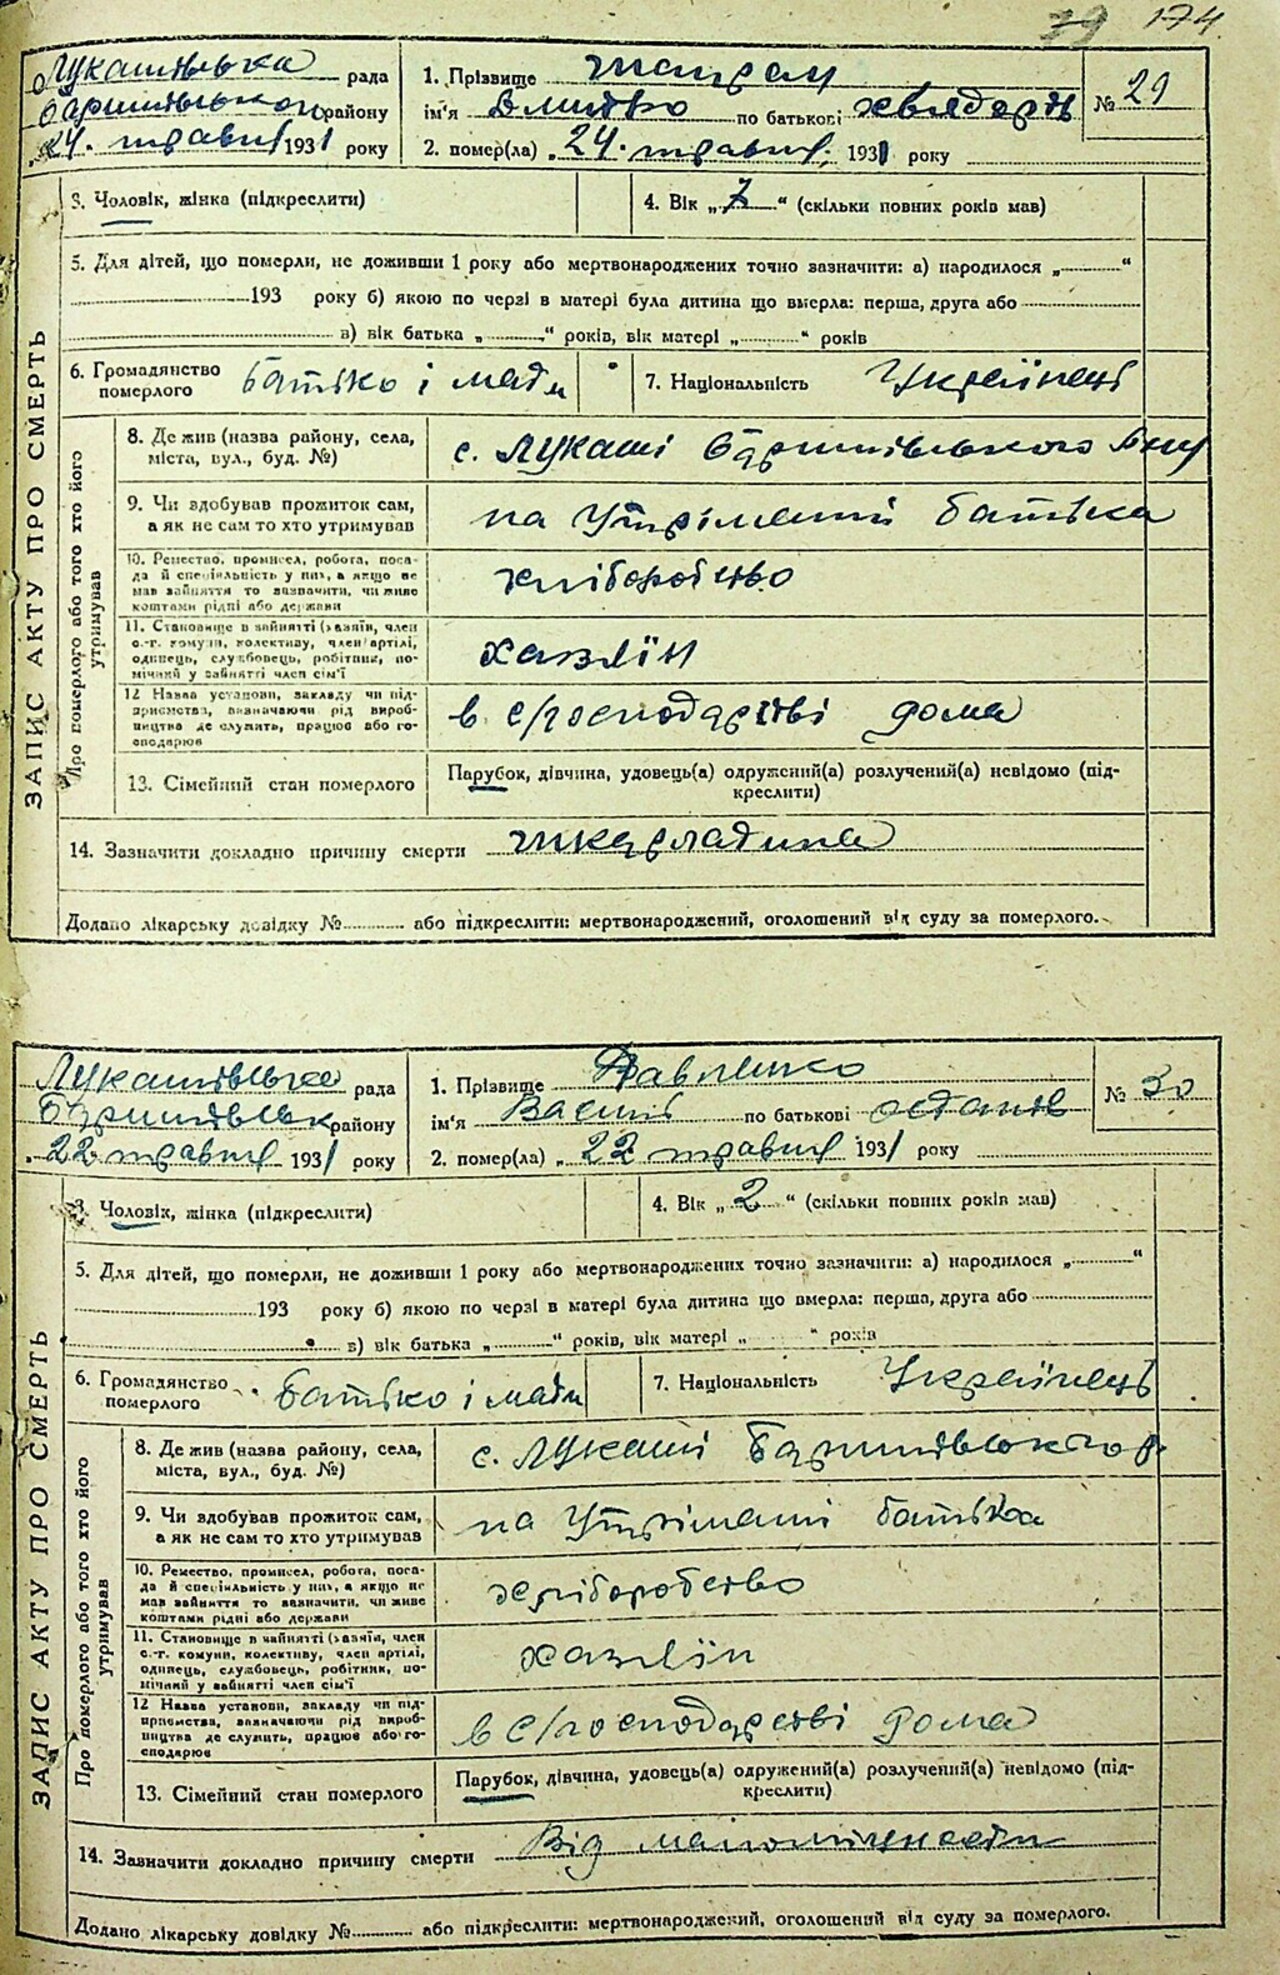 79 174
Лукашівська рада
Баришівського району
"24" травня 1931 року
1. Прізвище
ім'я Дмитро по батькові хведорів
№ 29
2. помер(ла) „24" травня 1931 року
3. Чоловік, жінка (підкреслити)
4. Вік „7" (скільки повних років мав)
5. Для дітей, що померли, не доживши 1 року або мертвонароджених точно зазначити: а) народилося „ "
193 року б) якою по черзі в матері була дитина що вмерла: перша, друга або
в) вік батька „ " років, вік матері „ " років
6. Громадянство померлого батько і мати
7. Національність Українець
ЗАПИС АКТУ ПРО СМЕРТЬ
Про померлого або того хто його утримував
8. Де жив (назва району, села,
міста, вул., буд. №)
с. Лукаші Баришівського
9. Чи здобував прожиток сам,
а як не сам то хто утримував
на утріманні батька
10. Ремество, промисел, робота, поса-
да й спеціяльність у них, а якщо не
мав зайняття то зазначити, чи живе
коштами рідні або держави
хліборобство
11. Становище в зайнятті (хазяїн, член
с.-г. комуни, колективу, член артілі,
одинець, службовець, робітник, по-
мічний у зайнятті член сім'ї
хазяїн
12 Назва установи, закладу чи під-
приємства, визначаючи рід вироб-
ництва де служить, працює або го-
сподарює
в с/господарстві дома
13. Сімейний стан померлого
Парубок, дівчина, удовець(а) одружений(а) розлучений(а) невідомо (під-
креслити)
14. Зазначити докладно причину смерти шкарлатина
Додано лікарську довідку № або підкреслити: мертвонароджений, оголошений від суду за померлого.
Лукашівська рада
Баришівськ району
"22 травня 1931 року
1. Прізвище Павленко
ім'я Василь по батькові остапів
№ 30
2. помер(ла) „22 травня 1931 року
3. Чоловік, жінка (підкреслити)
4. Вік „2" (скільки повних років мав)
5. Для дітей, що померли, не доживши 1 року або мертвонароджених точно зазначити: а) народилося „ "
193 року б) якою по черзі в матері була дитина що вмерла: перша, друга або
в) вік батька „ " років, вік матері „ " років
6. Громадянство померлого батько і мати
7. Національність Українець
ЗАПИС АКТУ ПРО СМЕРТЬ
Про померлого або того хто його утримував
8. Де жив (назва району, села,
міста, вул., буд. №)
с. Лукаші Баришівського р.
9. Чи здобував прожиток сам,
а як не сам то хто утримував
на утріманні батька
10. Ремество, промисел, робота, поса-
да й спеціяльність у них, а якщо не
мав зайняття то зазначити, чи живе
коштами рідні або держави
хліборобство
11. Становище в зайнятті (хазяїн, член
с.-г. комуни, колективу, член артілі,
одинець, службовець, робітник, по-
мічний у зайнятті член сім'ї
хазяїн
12 Назва установи, закладу чи під-
приємства, визначаючи рід вироб-
ництва де служить, працює або го-
сподарює
в с/господарстві дома
13. Сімейний стан померлого
Парубок, дівчина, удовець(а) одружений(а) розлучений(а) невідомо (під-
креслити)
14. Зазначити докладно причину смерти Від малоліцности
Додано лікарську довідку № або підкреслити: мертвонароджений, оголошений від суду за померлого.